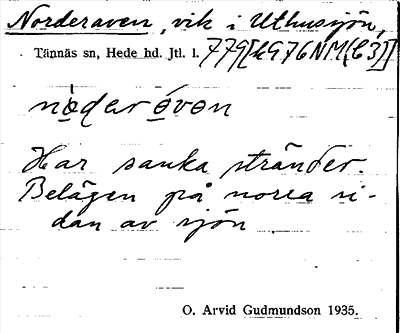 Norderaven, vik i Uthussjön,
Tännäs sn, Hede hd. Jtl. l. 779[kG76NM(C3)]
nòderéven
Har sanka stränder.
Belägen på norra si-
dan av sjön
O. Arvid Gudmundson 1935.